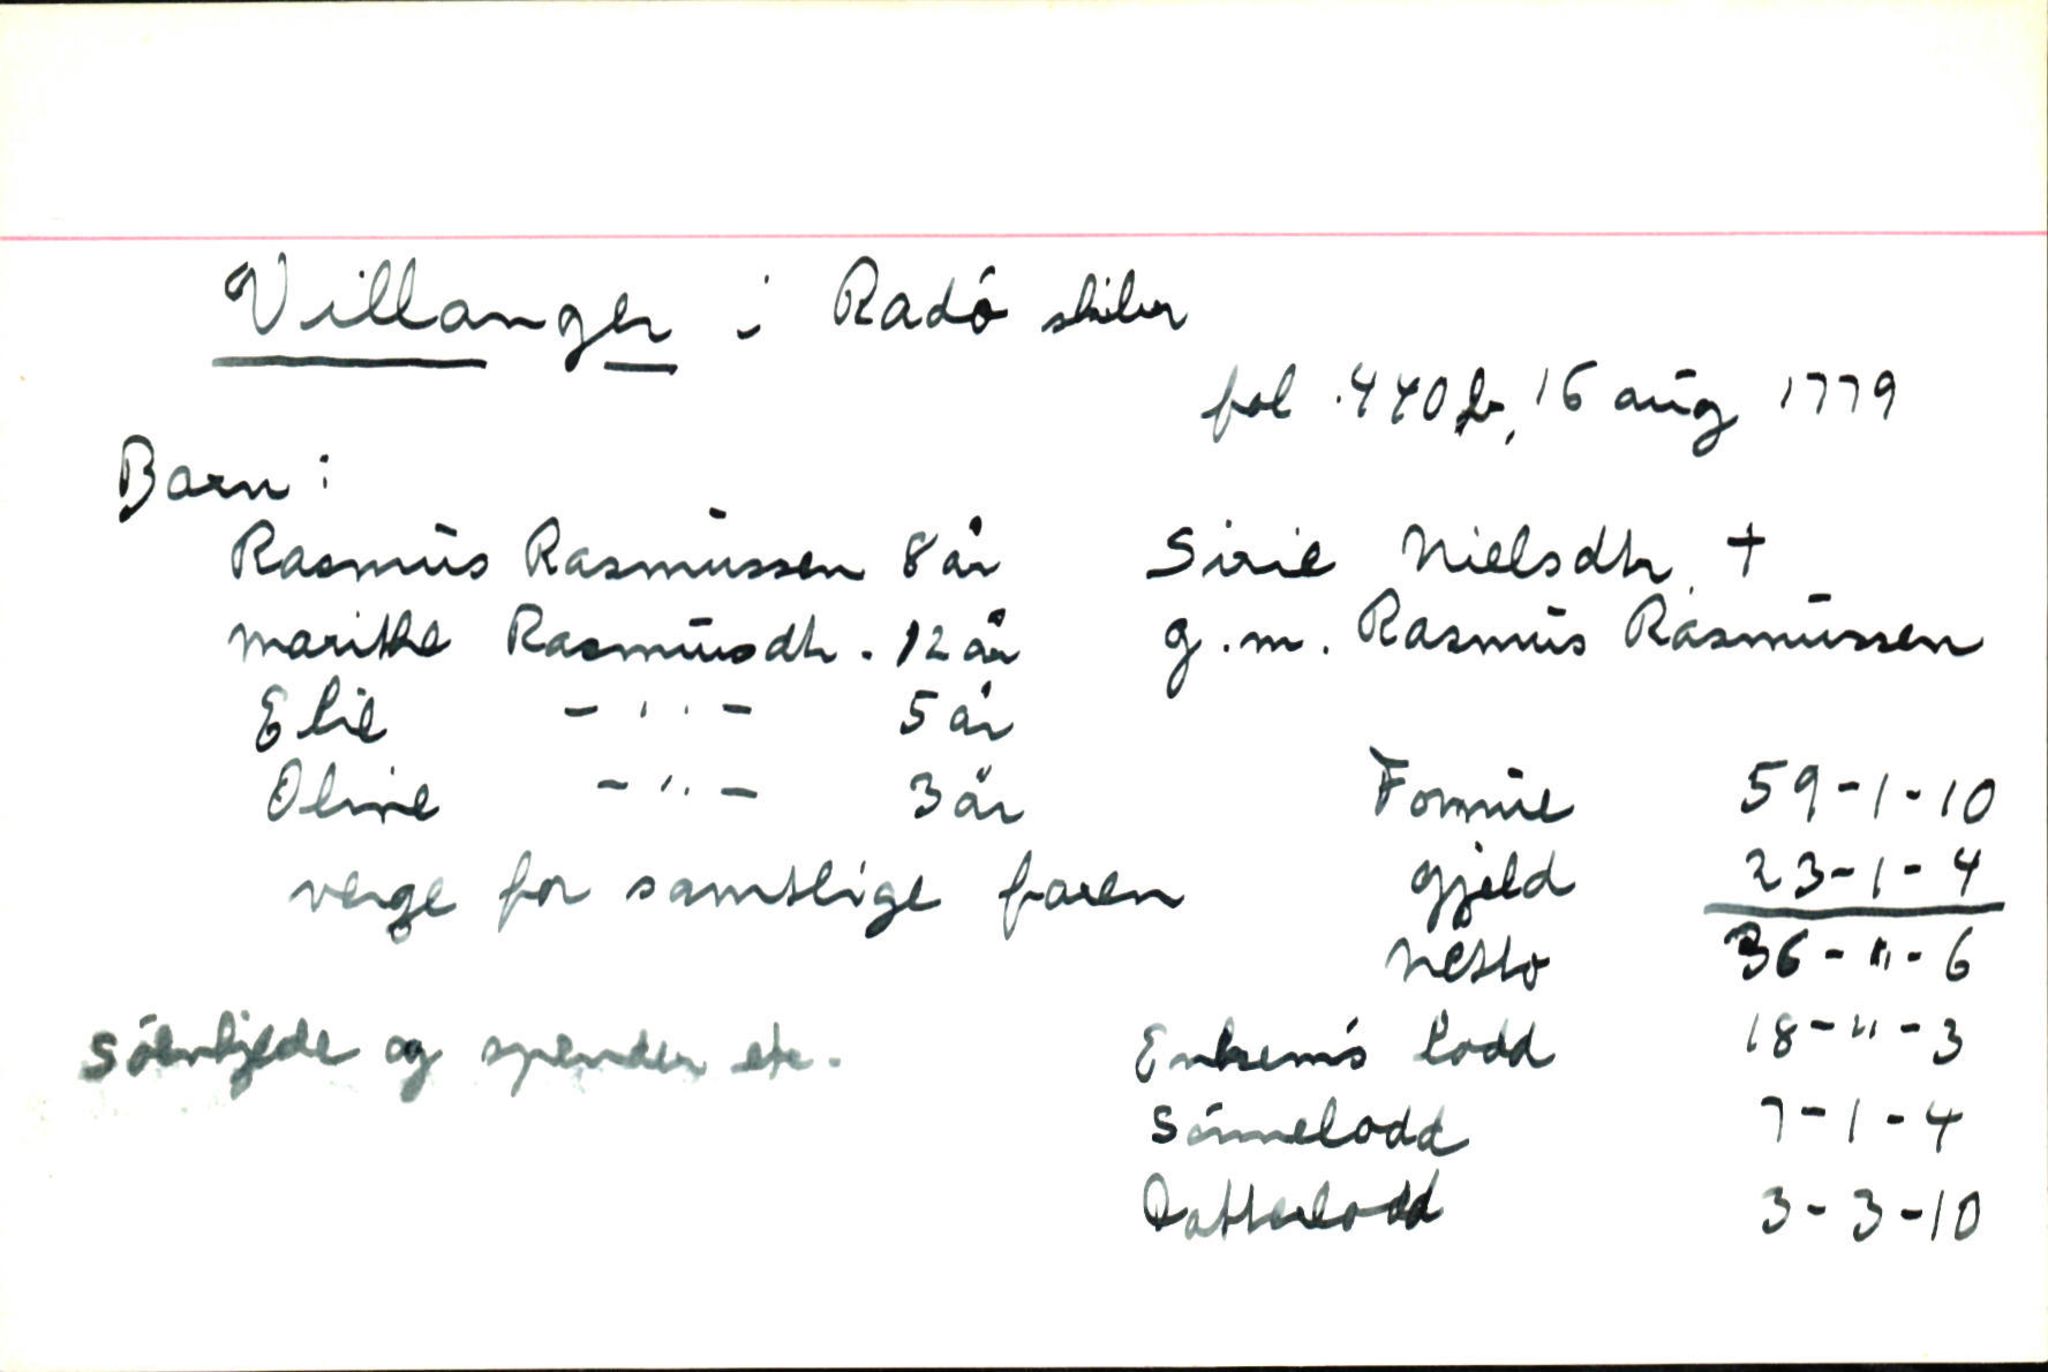 Villanger i Radö skiber
fol. 440 b, 16 aug 1779
Barn:
Rasmus Rasmussen 8 år
Marithe Rasmusdtr. 12 år
Elie - " - 5 år
Oline - " - 3 år
verge for samtlige faren
Sölvkjede og spender etc.
Sirie Nielsdtr. +
g.m. Rasmus Rasmussen
Formue 59-1-10
Gjeld 23-1-4
Netto 36-"-6
Enkem's lodd 18-"-3
Sönnelodd 7-1-4
Datterlodd 3-3-10